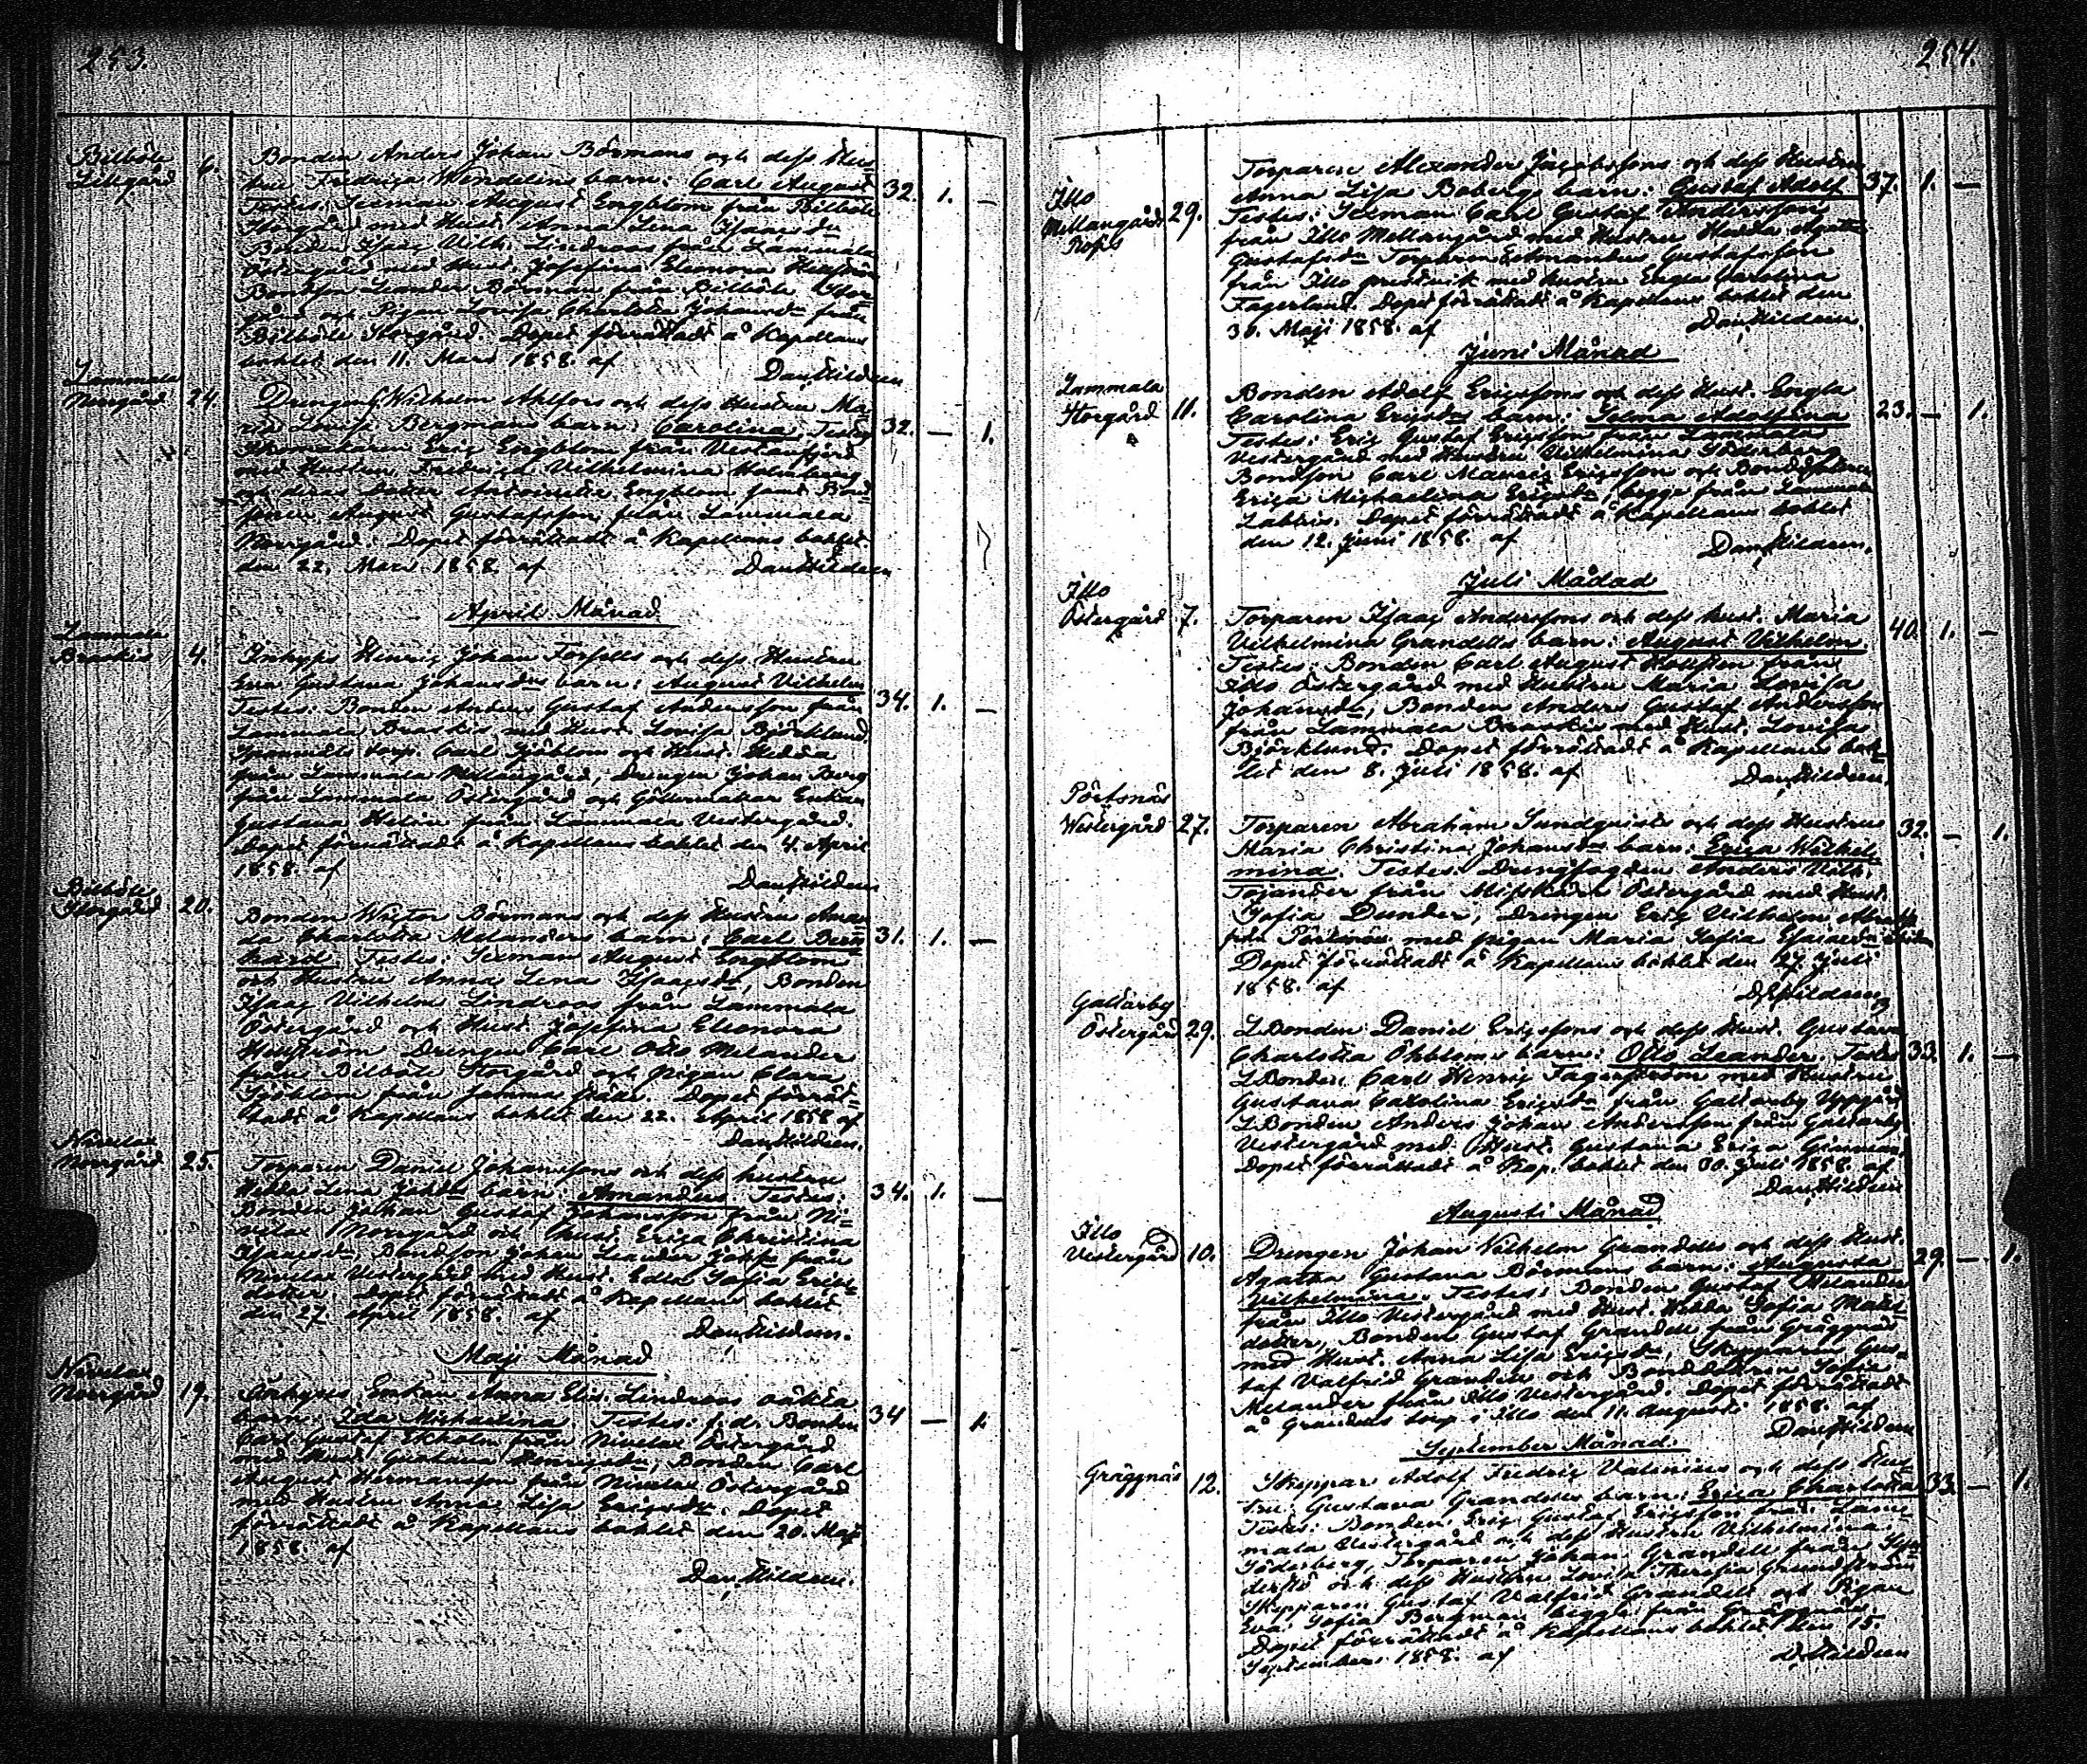 253.
Billböle 6. Bonden Anders Johan Börmans och dess Hus=
Lillgård tru Fredrica Wendelins barn: Carl August 32. 1. —
Testes: Sexman August Engblom från Billböle
Storgård med Hust. Anna Lena Isaacsdr
Bonden Isaac Vilh. Lindroos från Lammala
Östergård med Hust. Josefina Eleonora Hellström
Bondson Leander Börman från Billböle Stor=
gård och Pigan Lovisa Charlotta Johansdr från
Billböle Storgård. Dopet förrättadt å Kapellans
bohlet den 11. Mars 1858. af
Dan. Hildeen
Lammala
Norrgård 24 Drengen Wilhelm Ahlfors och dess Hustru Ma=
ria Lovisa Bergman barn: Carolina. Testes 32. — 1.
Eric Engblom från Vestanfjerd
med Hustru Fredrica Vilhelmina Holmberg
och deras dotter Antoinette Engblom samt Bond=
sonen August Gustafsson från Lammala
Norrgård. Dopet förrättadt å Kapellans bohlet
den 22. Mars 1858 af Dan. Hildeen
April Månad
Lammala
Braskis 4. Inhyses Henric Johan Forsells och dess Hustru
Eva Gustava Johansdrs barn: August Vilhelm
Testes: Bonden Anders Gustaf Andersson från 34. 1. —
Lammala Braskis med Hust. Lovisa Björklund
torp. Carl Sjöblom och Hust. Hedda
från Lammala Mellangård, Drengen Johan Berg
från Lammala Östergård och Enkan
Gustava Helin från Lammala Vestergård.
Dopet förrättadt å Kapellans bohlet den 4. April
1858. af
Dan. Hildeen
Billböle
Storgård 20. Bonden Wictor Börmans och dess Hustru Aman=
da Charlotta Melanders barn: Carl Bern= 31. 1. —
hard. Testes: Sexman August Engblom
och Hustru Anna Lena Isaacsdr, Bonden
Isaac Vilhelm Lindroos från Lammala
Östergård och Hust. Josefina Eleonora
Hellström Drengen Carl Otto Melander
från Billböle Storgård och pigan Clara
Sjöblom från samma ställe. Dopet förrät=
tadt å Kapellans bohlet den 22. April 1858 af
Dan. Hildeen.
Nivelax
Norrgård 25. Torparen Daniel Johanssons och dess hustru
Hedda Lena Jakobsdr barn: Amandus. Testes: 34. 1. —
Bonden Johan Gustaf Johansson från Ni=
velax Norrgård och Hust. Erica Christina
Isaacsdr, Bondson Johan Leander från
Nivelax Vestergård med Hust. Edla Sofia Erics=
dotter. Dopet förrättadt å Kapellans bohlet
den 27 April 1858. af
Dan. Hildeen.
Maji Månad
Nivelax
Norrgård 19. Enkan Anna Elis. Lindroos oäkta
barn: Ida Michaelina. Testes: f. d. Bonden 34 — 1.
Carl Gustaf Ekholm från Nivelax Östergård
med Hust. Gustava Henricsdr, Bonden Carl
August Hermansson från Nivelax Östergård
med Hustru Anna Lisa Ericsdr. Dopet
förrättadt å Kapellans bohlet den 20. Maji
1858. af
Dan. Hildeen.
254.
Illo Torparen Alexander Jacobssons och dess Hustru
Mellangård 29. Anna Lisa Bobergs barn: Gustaf Adolf 37. 1. —
Testes: Sexman Carl Gustaf Andersson
från Illo Mellangård med Hustru Hedda Agatha
Gustafsdr Torparen Edmandus Gustafsson
från Illo med Hustru Engla Carolina
Fagerlund. Dopet förrättadt å Kapellans bohlet den
30. Maji 1858. af Dan. Hildeen.
Juni Månad
Lammala Bonden Adolf Ericssons och dess Hust. Engla
Storgård 11. Carolina Ericsdrs barn: Selma Adolfina 23. — 1.
Testes: Eric Gustaf Ericsson från Lammala
Vestergård med Hustru Vilhelmina Söderberg
Bondson Carl Mauritz Ericsson och Bonddottren
Erica Michaelina Ericsdr, begge från Lammala
Labbis. Dopet förrättadt å Kapellans bohlet
den 12. Juni 1858. af
Dan. Hildeen.
Juli Mådad
Illo
Östergård 7. Torparen Isaac Anderssons och dess hust. Maria
Vilhelmina Grandells barn: August Vilhelm. 40. 1. —
Testes: Bonden Carl August Hollsten från
Illo Östergård med Hustru Maria Lovisa
Johansdr, Bonden Anders Gustaf Andersson
från Lammala Braskis med Hust. Lovisa
Björklund. Dopet förrättadt å Kapellans boh=
let den 8. Juli 1858. af Dan. Hildeen.
Pörtsnäs
Westergård 27. Torparen Abraham Sundqvists och dess Hustrus
Maria Christina Johansdrs barn: Erica Wilhel= 32. — 1.
mina. Testes: Drengfogden Anders Vilh.
Tojander från Misskärr Östergård med Hust.
Sofia Dunder, Drengen Eric Vilhelm
från Pörtsnäs med pigan Maria Sofia Esaiaedr
Dopet förrättadt å Kapellans bohlet den 27. Juli
1858. af D. Hildeen
Galtarby
Östergård 29. L.Bonden Daniel Ericssons och dess Hust. Gustava
Charlotta Öhbloms barn: Otto Leander. Testes 33. 1. —
L.Bonden Carl Henric Fagerström med Hustru
Gustava Carolina Ericsdr från Galtarby Uppgård
L.Bonden Anders Johan Andersson från Galtarby
Vestergård med Hust. Gustava Erica Ginman,
Dopet förrättadt å Kap. bohlet den 30. Juli 1858. af
Dan. Hildeen
Augusti Månad
Illo
Vestergård 10. Drengen Johan Vilhelm Grandells och dess Hust.
Agatha Gustava Börmans barn: Augusta 29. — 1.
Vilhelmina. Testes: Bonden Gustaf Melander
från Illo Vestergård med Hust. Hedda Sofia Mats=
dotter, Bonden Gustaf Grandell från Gräggnäs
med Hust. Anna Lisa Ericsdr, Skepparen Gus=
taf Valfrid Grandell och Bonddottren Sofia
Melander från Illo Vestergård. Dopet förrättadt
å Grandells torp i Illo den 11. Augusti 1858. af
Dan. Hildeen
September Månad.
Gräggnäs 12. Skeppar Adolf Fredric Valenius och dess Hus=
tru Gustava Grandells barn: Erica Charlotta 33. — 1.
Testes: Bonden Eric Gustaf Ericsson från Lam=
mala Vestergård och dess Hustru Vilhelmina
Söderberg, Torparen Johan Grandell från
och dess Hustru Lovisa Theresia Grundström
Skepparen Gustaf Valfrid Grandell och Pigan
Eva Sofia Bergman begge från Gräggnäs.
Dopet förrättadt å Kapellans bohlet den 15.
September 1858. af D. Hildeen